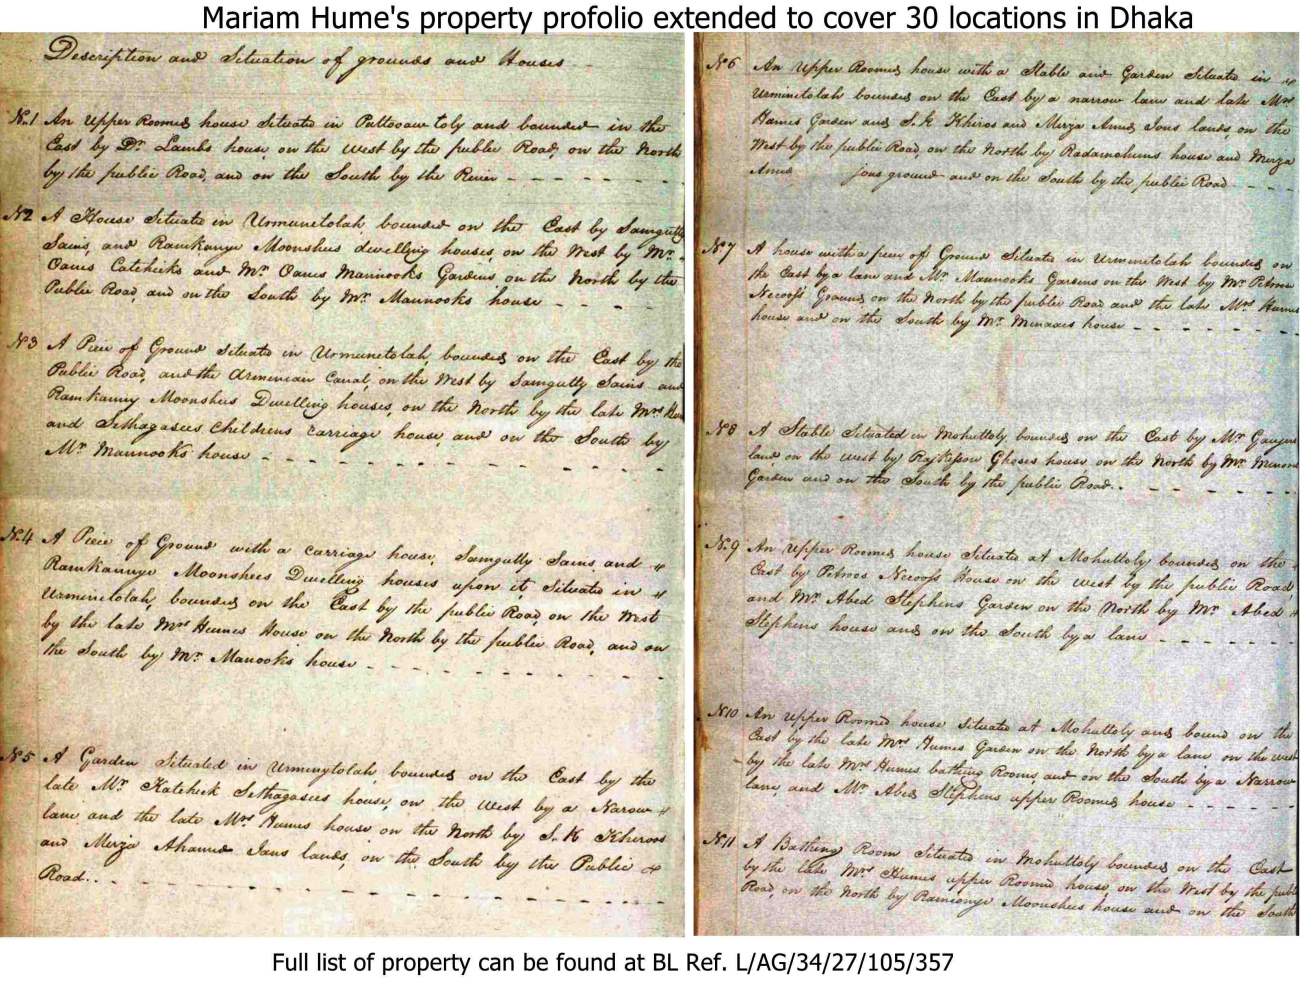 Mariam Hume's property profolio extended to cover 30 locations in Dhaka
Description and Situation of grounds and Houses
No.1 An Upper Roomed house Situated in Puttooaw toly and bounded in the
East by Dr. Lambs house, on the West by the public Road, on the North
by the public Road, and on the South by the River
No2 A House Situate in Urmunetolah bounded on the East by Samgutty
Sains, and Ramkanye Moonshees dwelling houses, on the West by Mr.
Oanes Catchicks and Mr Oanes Mannooks Gardens on the North by the
Public Road, and on the South by Mr. Mannooks house
No3 A Piece of Ground Situate in Urmunetolah, bounded on the East by the
Public Road, and the Arminian Canal, on the West by Samgutty Sains and
Ramkanny Moonshees Dwelling houses, on the North by the late Mrs Hum
and Sethagasees Childrens Carriage house, and on the South by
Mr. Mannooks house
No.4 A Piece of Ground with a carriage house, Samgutty Sains, and
Ramkannye Moonshees Dwelling houses upon it, Situate in
Urminetolah, bounded on the East by the public Road, on the West
by the late Mrs Humes House on the North by the public Road, and on
the South by Mr. Manooks house
No5 A Garden Situated in Urmenytolah, bounded on the East by the
late Mr. Katchick Sethagasees house, on the West by a Narow
lane and the late Mrs Humes house on the North by S. K Kheroos
and Merza Ahamud Jans lands, on the South by the Public
Road..
No6 An Upper Roomed house with a Stable and Garden Situate in
Urminetolah bounded on the East by a narrow lane and late Mrs
Humes Garden and S. K Khiros and Merza Amud Jons lands, on the
West by the public Road, on the North by Radamohuns house and Merza
Amud Jons ground and on the South by the public Road
No7 A house with a piece of Ground Situate in Urminetolah bounded on
the East by a lane and Mr. Mannooks Gardens on the West by Mr Petroos
Necooss Ground on the North by the public Road and the late Mrs Humes
house and on the South by Mr. Minaas house
No8 A Stable Situated in Mohuttoly bounded on the East by Mr
land on the West by Rajkissore Ghoses house on the North by Mr.
Garden and on the South by the public Road..
No.9 An Upper Roomed house Situate at Mohuttoly bounded on the
East by Petroos Necooss House on the West by the public Road
and Mr. Abed Stephens Garden on the North by Mr. Abed
Stephens house and on the South by a lane
No10 An Upper Roomed house Situate at Mohuttoly and bound on the
East by the late Mrs Humes Garden on the North by a lane on the West
by the late Mrs Humes bathing Rooms, and on the South by a Narrow
lane, and Mr Abed Stephens upper Roomed house
No11 A Bathing Room Situated in Mohuttoly bounded on the East
by the late Mrs Humes upper Roomed house, on the West by the publ
Road, on the North by Ramconye Moonshees house and on the South
Full list of property can be found at BL Ref. L/AG/34/27/105/357